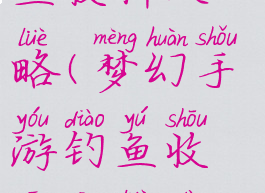 lüè mèng huàn shǒu
略(梦幻手
yóu diào yú shōu
游钓鱼收